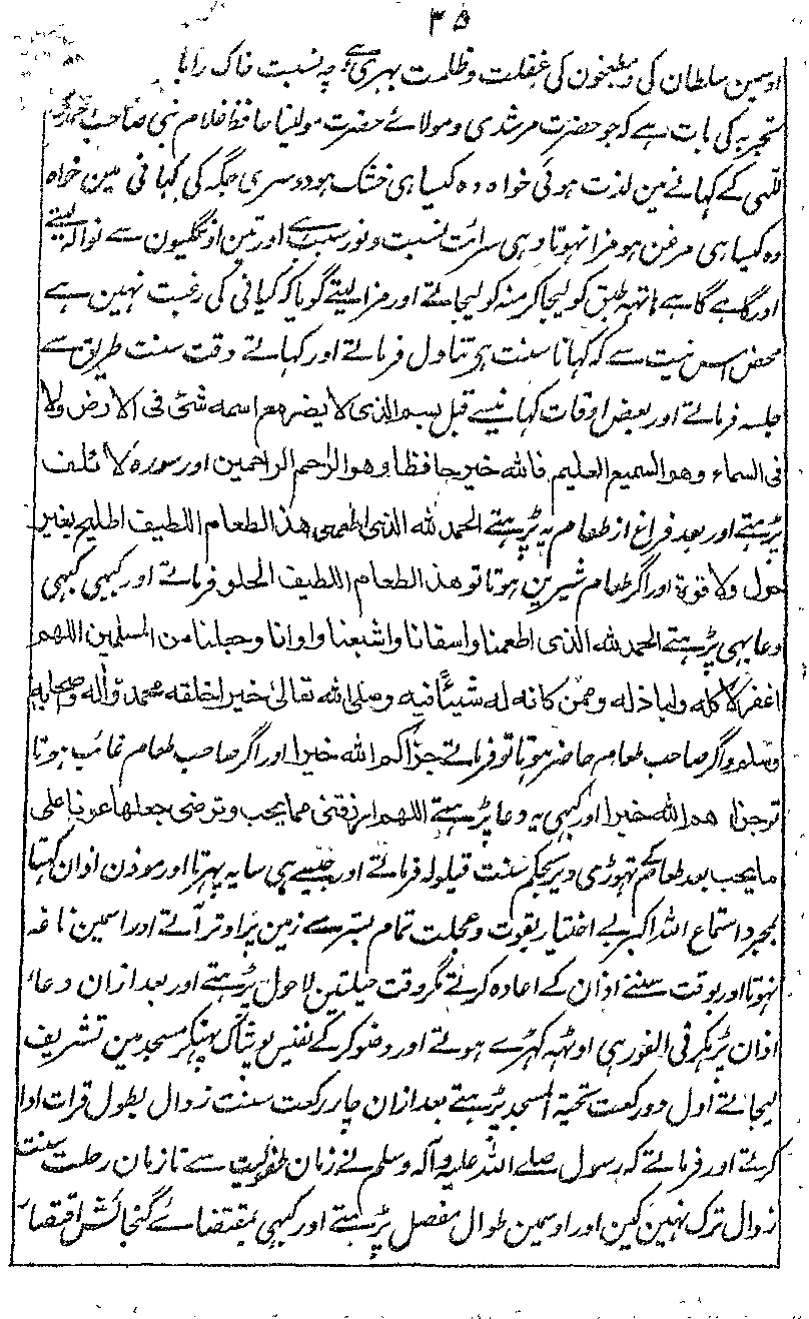 ۳۵
اوسمین سلطان کی و مطبخون کی غفلت و ظلمت بہری ہے چہ نسبت خاک را با
تجربہ کی بات ہے کہ جو حضرت مرشدی و مولائے حضرت مولینا حافظ غلام نبی صاحب
للہی کے کہانے مین لذت ہوئی خواہ وہ کیسا ہی خشک ہو دوسری جگہ کی کہانی مین خواہ
وہ کیسا ہی مرغن ہو مزا نہوتا وہی سرائت نسبت و نور سبب ہے اور تین اونگلیون سے نوالہ لیتے
اور گاہے گاہے ہاتہہ طبق کو لیجا کر منہ کو لیجاتے اور مزا لیتے گویا کہ کہانی کی رغبت نہین ہے
محض اس نیت سے کہ کہانا سنت ہی تناول فرماتے اور کہاتے وقت سنت طریق سے
جلسہ فرماتے اور بعض اوقات کہانیسے قبل بسم الذی لا یضر مع اسمہ شئ فی الارض ولا
فی السماء وھو السمیع العلیم فاللہ خیر حافظا وھو الراحم الراحمین اور سورہ لا ئلف
پڑہتے اور بعد فراغ از طعام یہ پڑہتے الحمد للہ الذی اطعمنی ھذ الطعام اللطیف الملیح بغیر
حول ولا قوۃ اور اگر طعام شیرین ہوتا تو ھذ الطعام اللطیف الحلو فرماتے اور کبہی کبہی
دعا یہی پڑہتے الحمد للہ الذی اطعمنا واسقانا واشبعنا واوانا وجعلنا من المسلمین اللھم
اغفر لاکلہ ولباذلہ ولمن کانہ لہ شیئًا فیہ وصلی اللہ تعالیٰ خیر لخلقہ محمد وآلہ وصحابہ
وسلم و اگر صاحب طعام حاضر ہوتا تو فرماتے جزاکم اللہ خیرا اور اگر صاحب طعام غائب ہوتا
تو جزا ھم اللہ خیرا اور کبہی یہ دعا پڑہتے اللھم ارزقنی مما یحب وترضی جعلھا عونا علی
ما یحب بعد طعام تہوڑی دیر بحکم سنت قیلولہ فرماتے اور جیسے ہی سایہ پہرتا اور موذن اذان کہتا
بمجرد استماع اللہ اکبر بے اختیار بقوت و عجلت تمام بستر سے زمین پر اوتر آتے اور اسمین ناغہ
نہوتا اور بوقت سننے اذان کے اعادہ کرتے مگر وقت حیلتین لاحول پڑہتے اور بعد ازان دعاء
اذان پڑہکر فی الفور ہی اوٹہہ کہڑے ہوتے اور وضو کر کے نفیس پوشاک پہنکر مسجد مین تشریف
لیجاتے اول دو رکعت تحیۃ المسجد پڑہتے بعد ازان چار رکعت سنت زوال بطول قرات ادا
کرتے اور فرماتے کہ رسول صلے اللہ علیہ وآلہ وسلم نے زمان طفولیت سے تا زمان رحلت سنت
زوال ترک نہین کین اور اوسمین طوال مفصل پڑہتے اور کبہی بمقتضائے گنجائش اقتصار